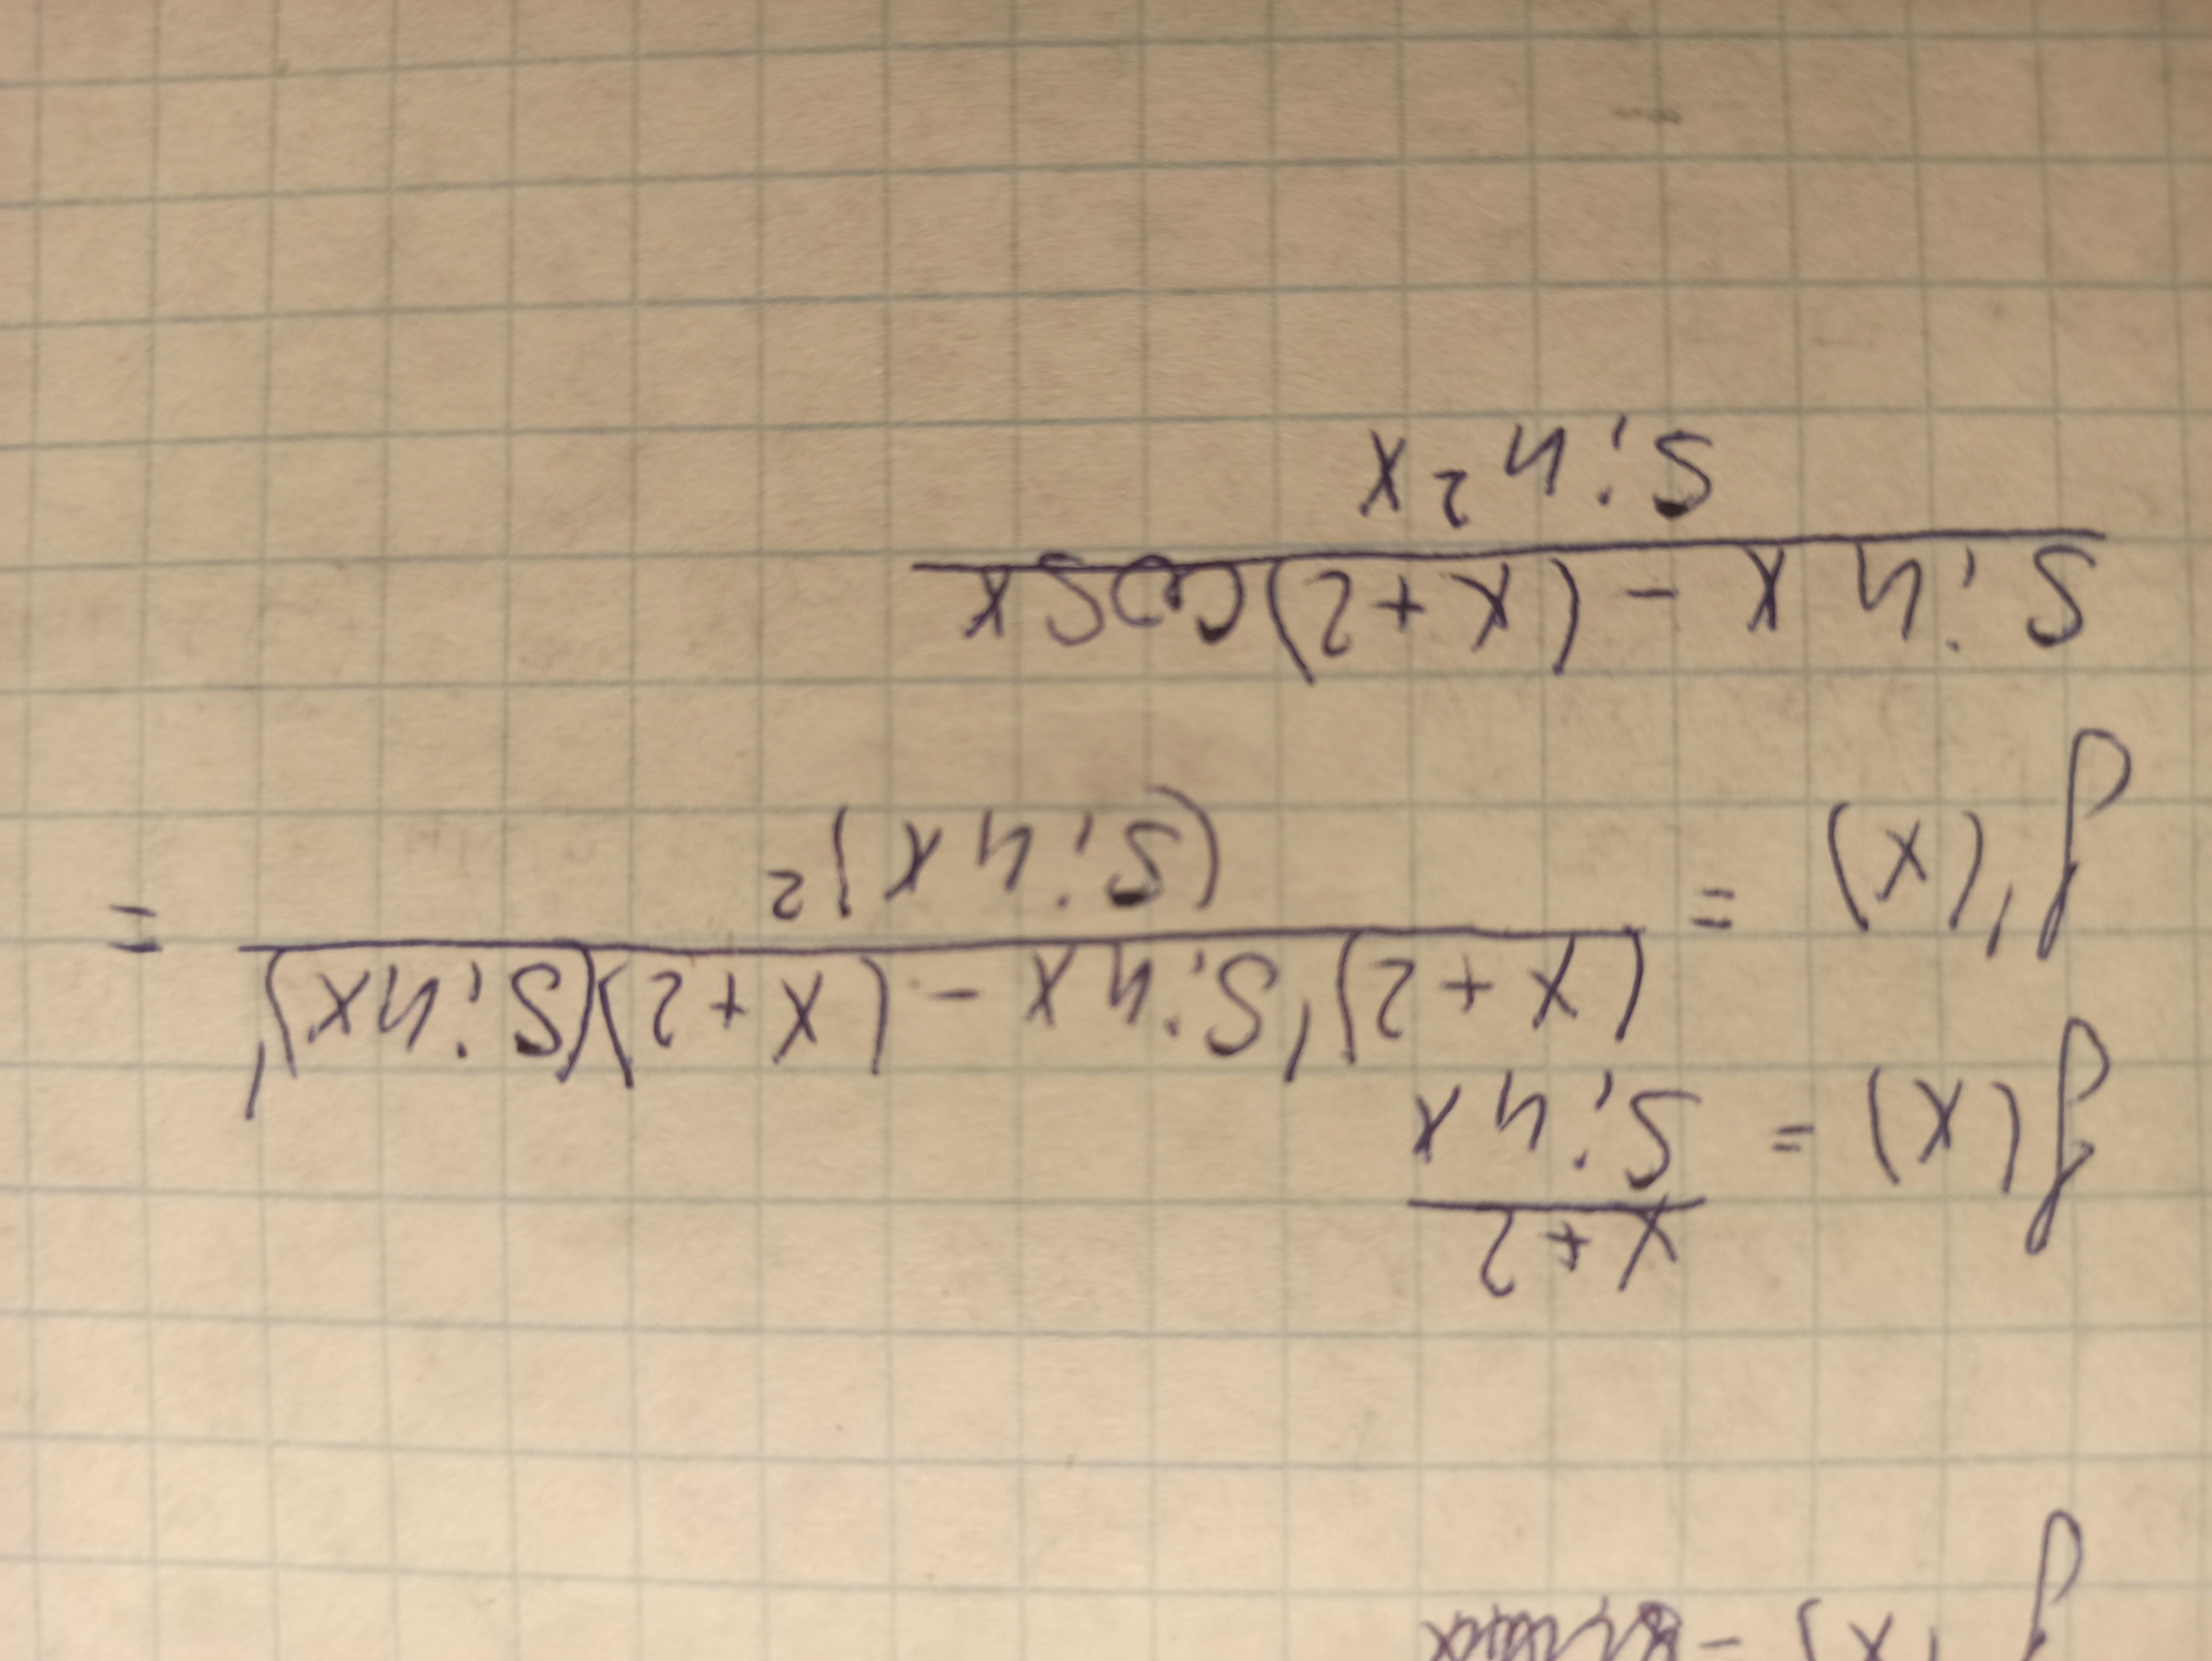 f(x) = (x+2)/(sin x)
f'(x) = ((x+2)'sin x - (x+2)(sin x)')/((sin x)²) =
(sin x - (x+2)cos x)/(sin²x)